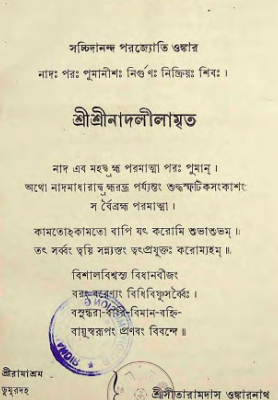 সচ্চিদানন্দ পরজ্যোতি ওঙ্কার
নাদঃ পরঃ পুমানীশঃ নির্গুণঃ নিষ্ক্রিয়ঃ শিবঃ ।
শ্রীশ্রীনাদলীলামৃত
নাদ এব মহদ্ব্রহ্ম পরমাত্মা পরঃ পুমান্ ।
অথো নাদমাধারাদ্ব্রহ্মরন্ধ্র পর্য্যন্তং শুদ্ধস্ফটিকসংকাশং
স বৈব্রহ্ম পরমাত্মা ।
কামতোঽকামতো বাপি যৎ করোমি শুভাশুভম্ ।
তৎ সর্ব্বং ত্বয়ি সন্ন্যস্তং ত্বৎপ্রযুক্তঃ করোম্যহম্ ॥
বিশালবিশ্বস্য বিধানবীজং
বরং বরেণ্যং বিধিবিষ্ণুসর্ব্বৈঃ ।
বসুন্ধরা-বারি-বিমান-বহ্নি-
বায়ুস্বরূপং প্রণবং বিবন্দে ॥
শ্রীরামাশ্রম
ডুমুরদহ
শ্রীসীতারামদাস ওঙ্কারনাথ